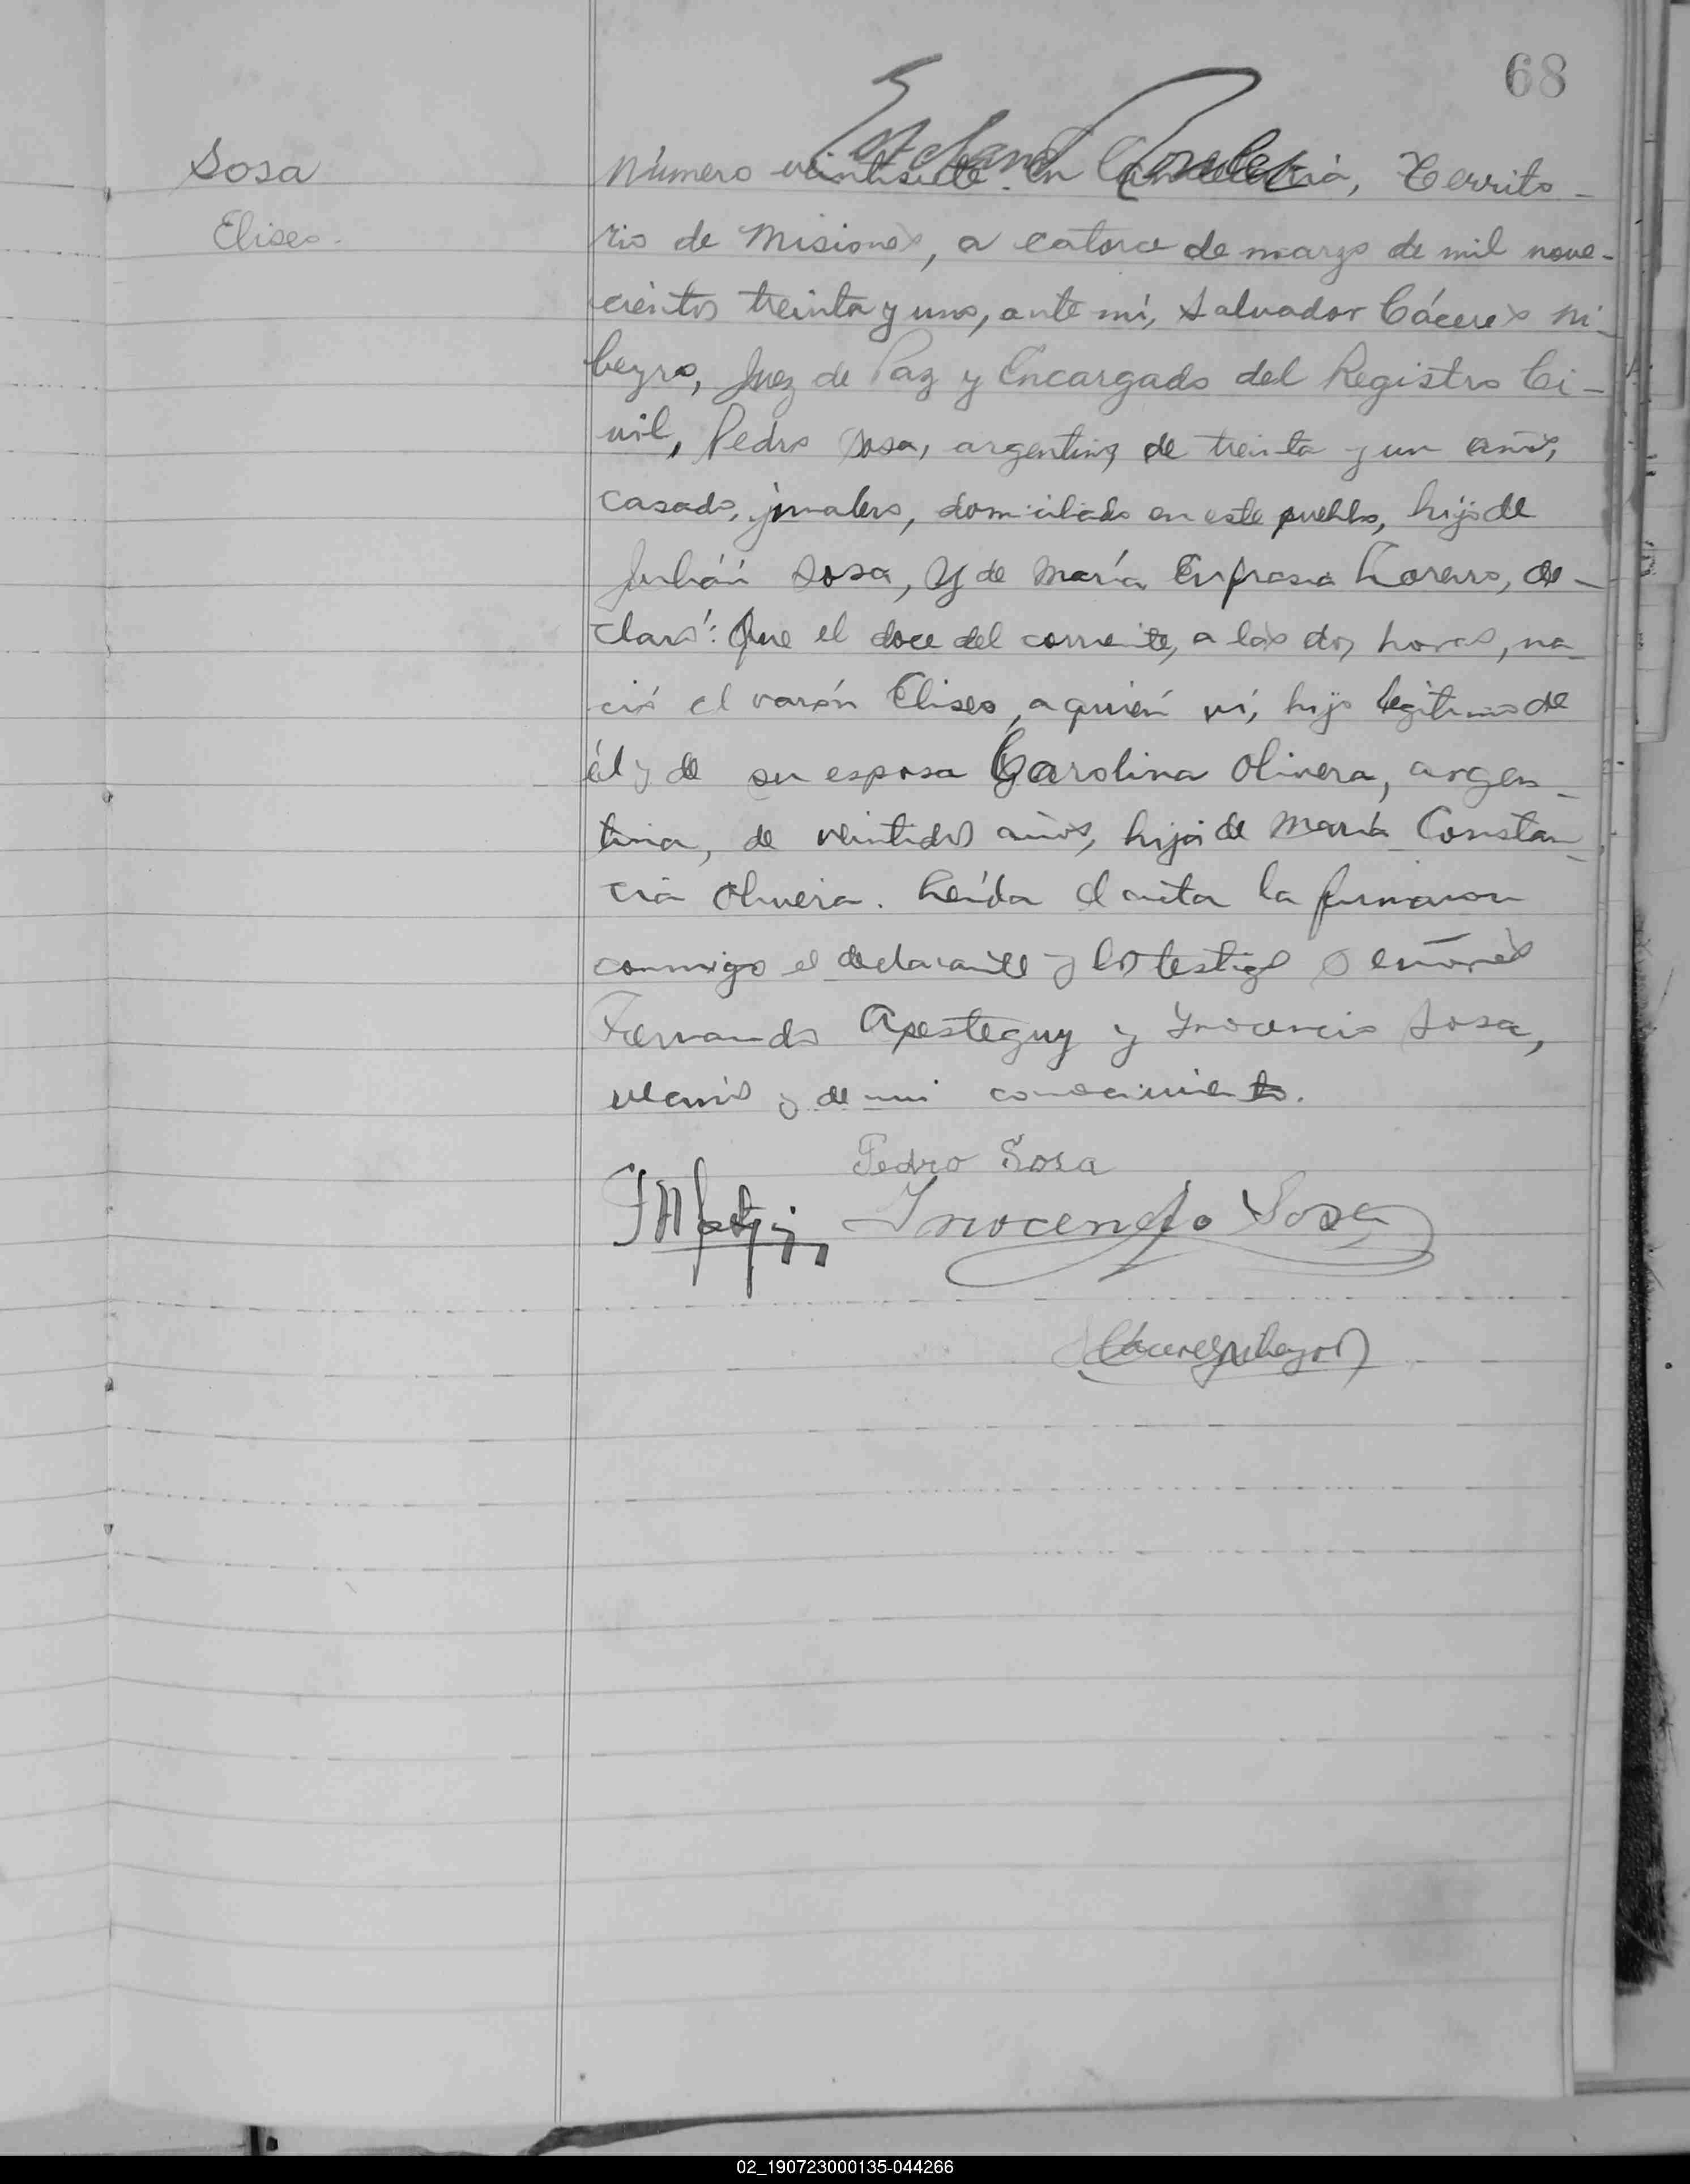 68
Sosa
Eliseo.
Número veintisiete. En Candelaria, Territo-
rio de Misiones, a catorce de marzo de mil nove-
cientos treinta y uno, ante mí, Salvador Cáceres Ni-
beyro, Juez de Paz y Encargado del Registro Ci-
vil, Pedro Sosa, argentino, de treinta y un años,
casado, jornalero, domiciliado en este pueblo, hijo de
Julián Sosa, y de María Eufrasia, de-
claró: Que el doce del corriente, a las dos horas, na-
ció el varón Eliseo, a quién ví, hijo legítimo de
él y de su esposa Carolina Olivera, argen-
tina, de veintidos años, hija de María Constan-
cia Olivera. Leída el acta la firmaron
conmigo el declarante y los testigos señores
Fernando Apesteguy y Inocencio Sosa,
vecinos y de mi conocimiento.
Pedro Sosa
Inocencio Sosa
02_190723000135-044266